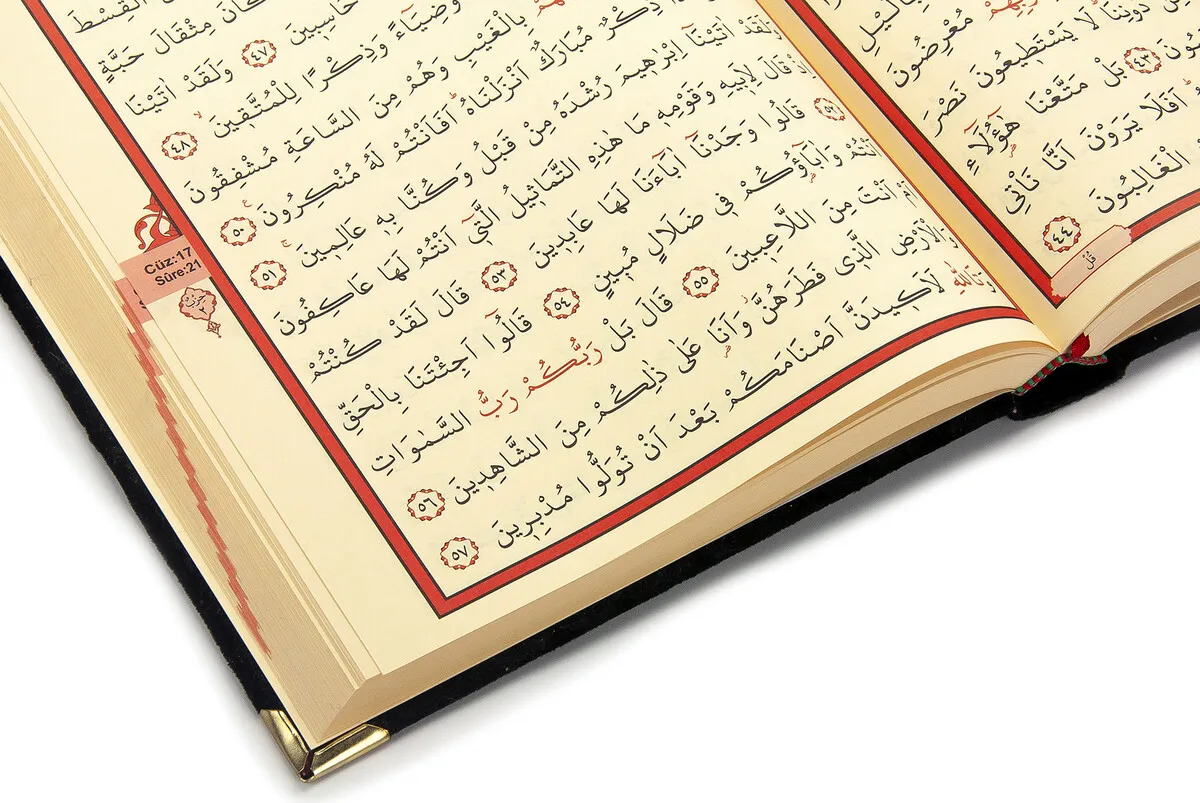 مُعْرِضُونَ
دُونِنَا لَا يَسْتَطِيعُونَ نَصْرَ
٤٣ بَلْ مَتَّعْنَا هٰٓؤُلَٓاءِ
اَفَلَا يَرَوْنَ اَنَّا نَأْتِي
الْغَالِبُونَ ٤٤
الْقِسْطَ
كَانَ مِثْقَالَ حَبَّةٍ
حَاسِبِينَ ٤٧ وَلَقَدْ اٰتَيْنَا
وَضِيَٓاءً وَذِكْرًا لِلْمُتَّقِينَ ٤٨
بِالْغَيْبِ وَهُمْ مِنَ السَّاعَةِ مُشْفِقُونَ
ذِكْرٌ مُبَارَكٌ اَنْزَلْنَاهُ اَفَاَنْتُمْ لَهُ مُنْكِرُونَ ٥٠
وَلَقَدْ اٰتَيْنَٓا اِبْرٰهِيمَ رُشْدَهُ مِنْ قَبْلُ وَكُنَّا بِهِ عَالِمِينَ ٥١
اِذْ قَالَ لِاَبِيهِ وَقَوْمِهِ مَا هٰذِهِ التَّمَاثِيلُ الَّتِٓي اَنْتُمْ لَهَا عَاكِفُونَ
٥٢ قَالُوا وَجَدْنَٓا اٰبَٓاءَنَا لَهَا عَابِدِينَ ٥٣ قَالَ لَقَدْ كُنْتُمْ
اَنْتُمْ وَاٰبَٓاؤُكُمْ فِي ضَلَالٍ مُبِينٍ ٥٤ قَالُٓوا اَجِئْتَنَا بِالْحَقِّ
اَمْ اَنْتَ مِنَ اللَّاعِبِينَ ٥٥ قَالَ بَلْ رَبُّكُمْ رَبُّ السَّمٰوَاتِ
وَالْاَرْضِ الَّذِي فَطَرَهُنَّ وَاَنَا عَلٰى ذٰلِكُمْ مِنَ الشَّاهِدِينَ ٥٦
وَتَاللّٰهِ لَاَكِيدَنَّ اَصْنَامَكُمْ بَعْدَ اَنْ تُوَلُّوا مُدْبِرِينَ ٥٧
Cüz:17
Sûre:21
حزب
٢